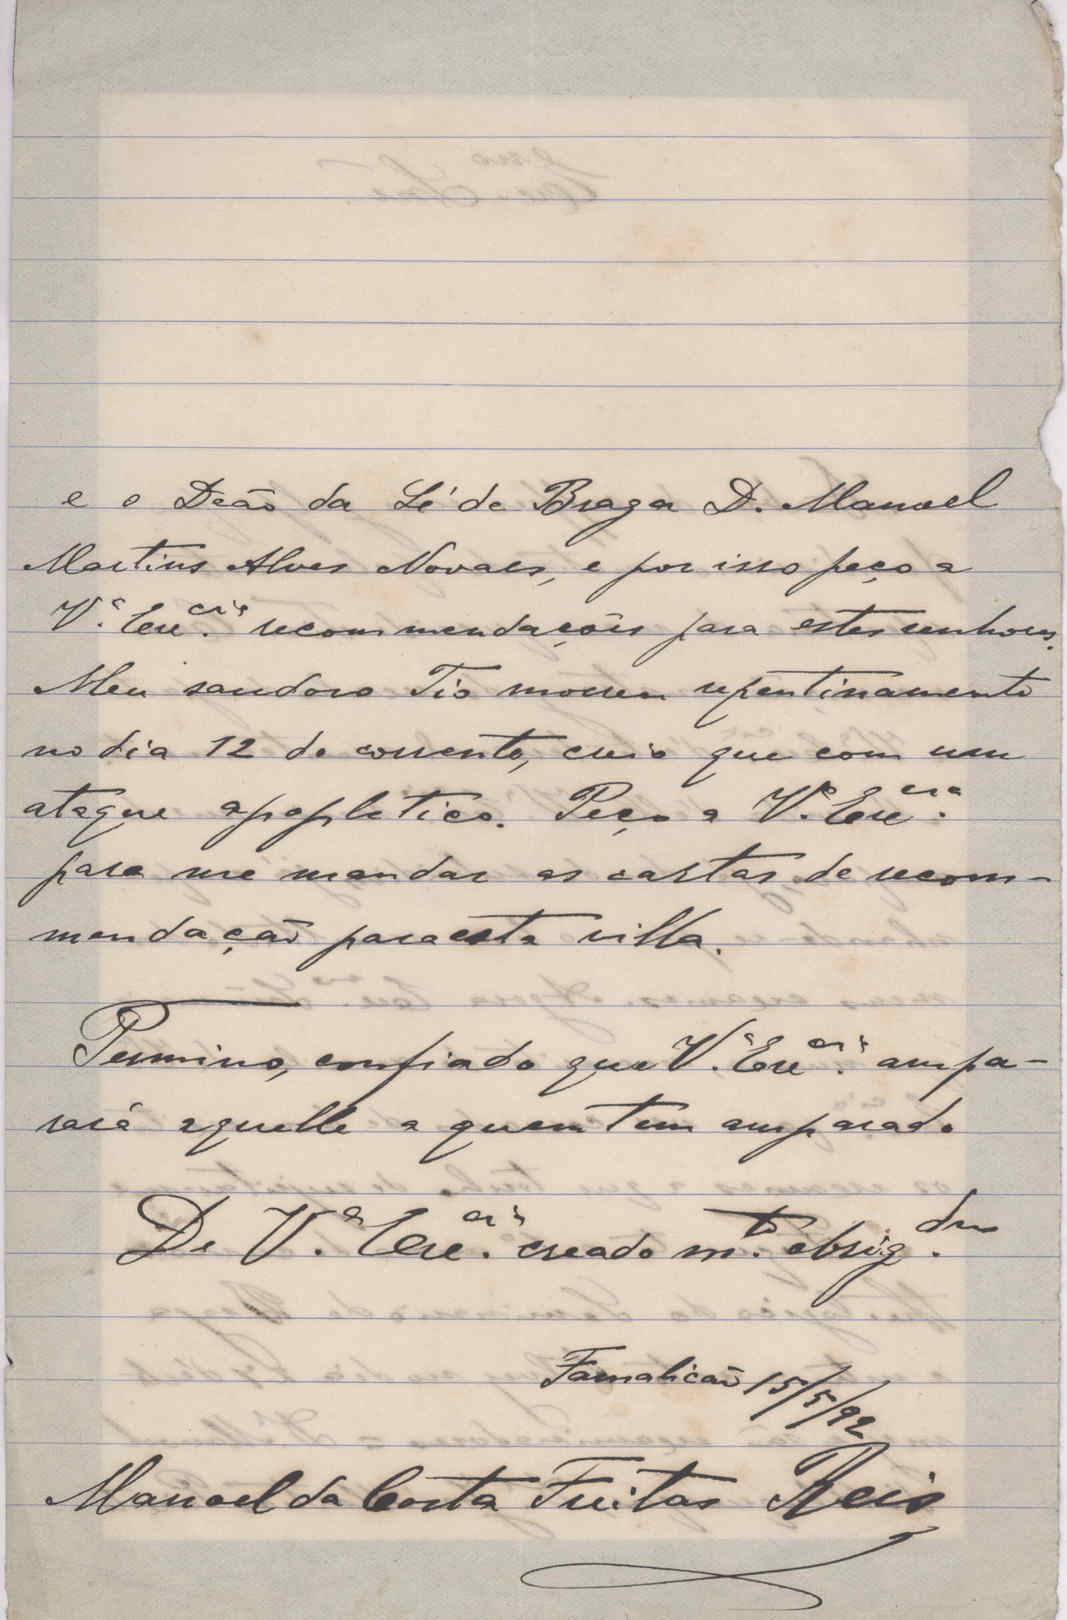 e o Deão da Sé de Braga D. Manoel
Martins Alves Novaes, e por isso peço a
V.ª Exc.cia recommendações para estes senhores.
Meu saudoso Tio morreu repentinamente
no dia 12 do corrente, creio que com um
ataque apopletico. Peço a V.ª Exc.cia
para me mandar as cartas de recom-
mendação para esta villa.
Termino, confiado que V.ª Exc.cia ampa-
rará aquelle a quem tem amparado
De V.ª Exc.cia creado m.to obrig.do
Famalicão 15/5/92
Manoel da Costa Freitas Reis